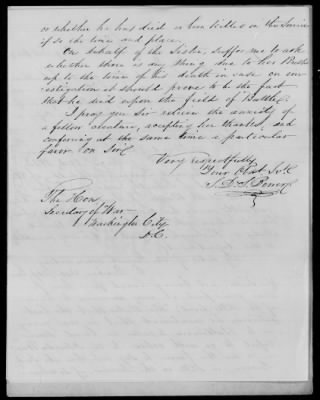 or whether he has died or been killed in the Service
if so the time and place.
On behalf of the Sister, suffer me to ask
whether there is any thing due to her Brother
up to the time of his death in case on inv
estigation it should prove to be the fact
that he died upon the field of Battle.
I pray you Sir relieve the anxiety of
a fellow creature, accepting her thanks, and
conferring at the same time a particular
favor on Sir
Very respectfully
Your Obdt Svt
The Hon
Secretary of War
Washington City
D.C.